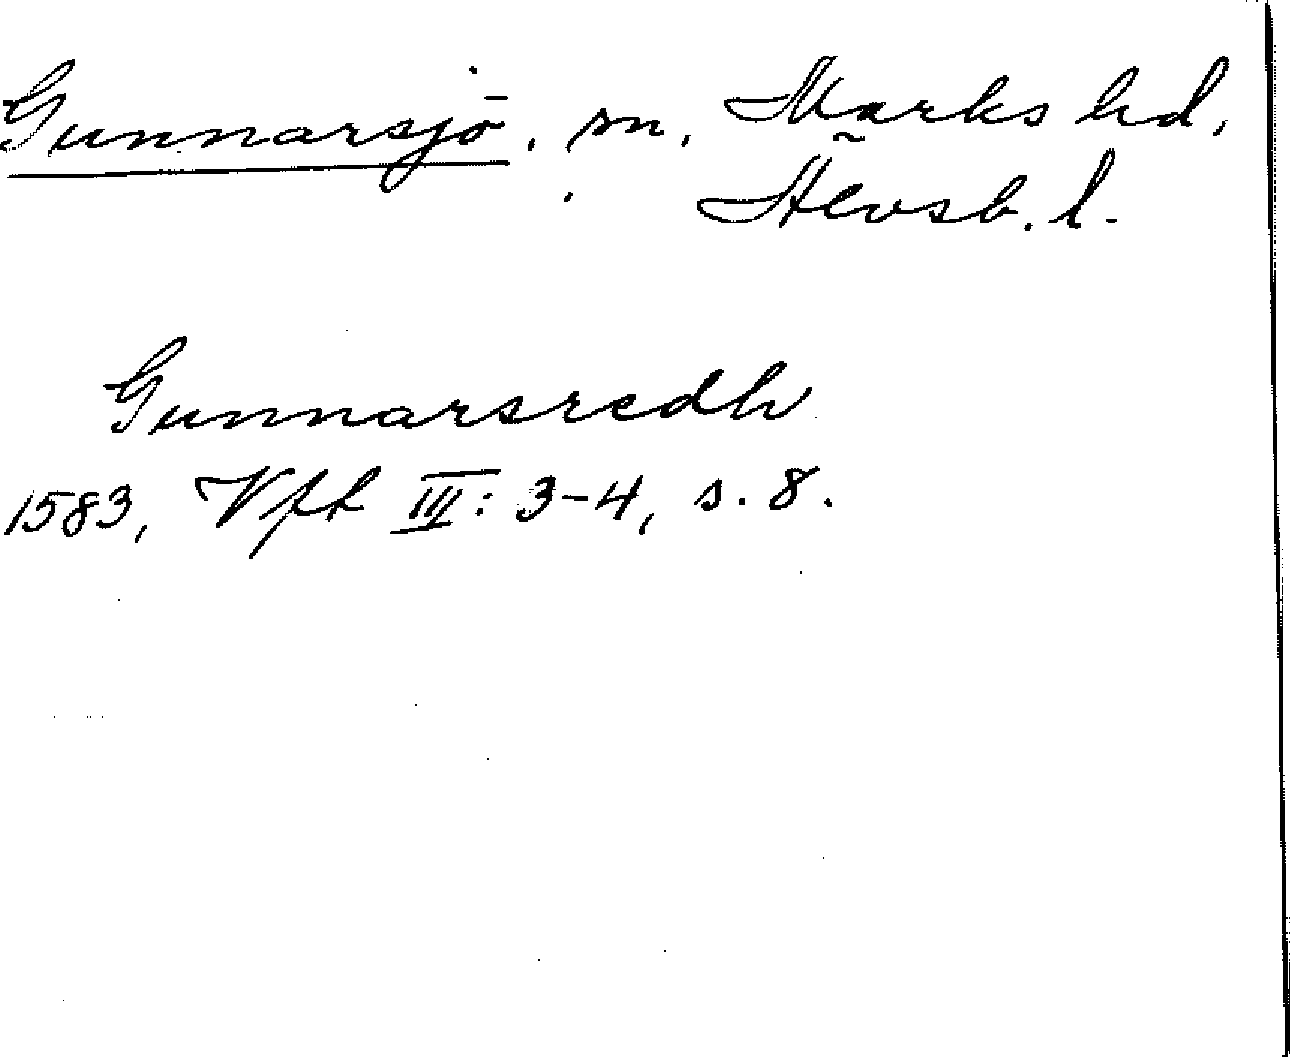 Gunnarsjö, sn, Marks hd,
Älvsb. l.
Gunnarsredh
1583, Vfk III: 3-4, s. 8.